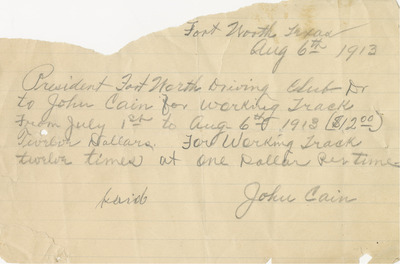 Fort Worth Texas
Aug 6th 1913
President Fort Worth Driving Club Dr
to John Cain for Working Track
From July 1st to Aug 6th 1913 ($12.00)
Twelve Dollars. For Working Track
twelve times at one Dollar per time
paid John Cain